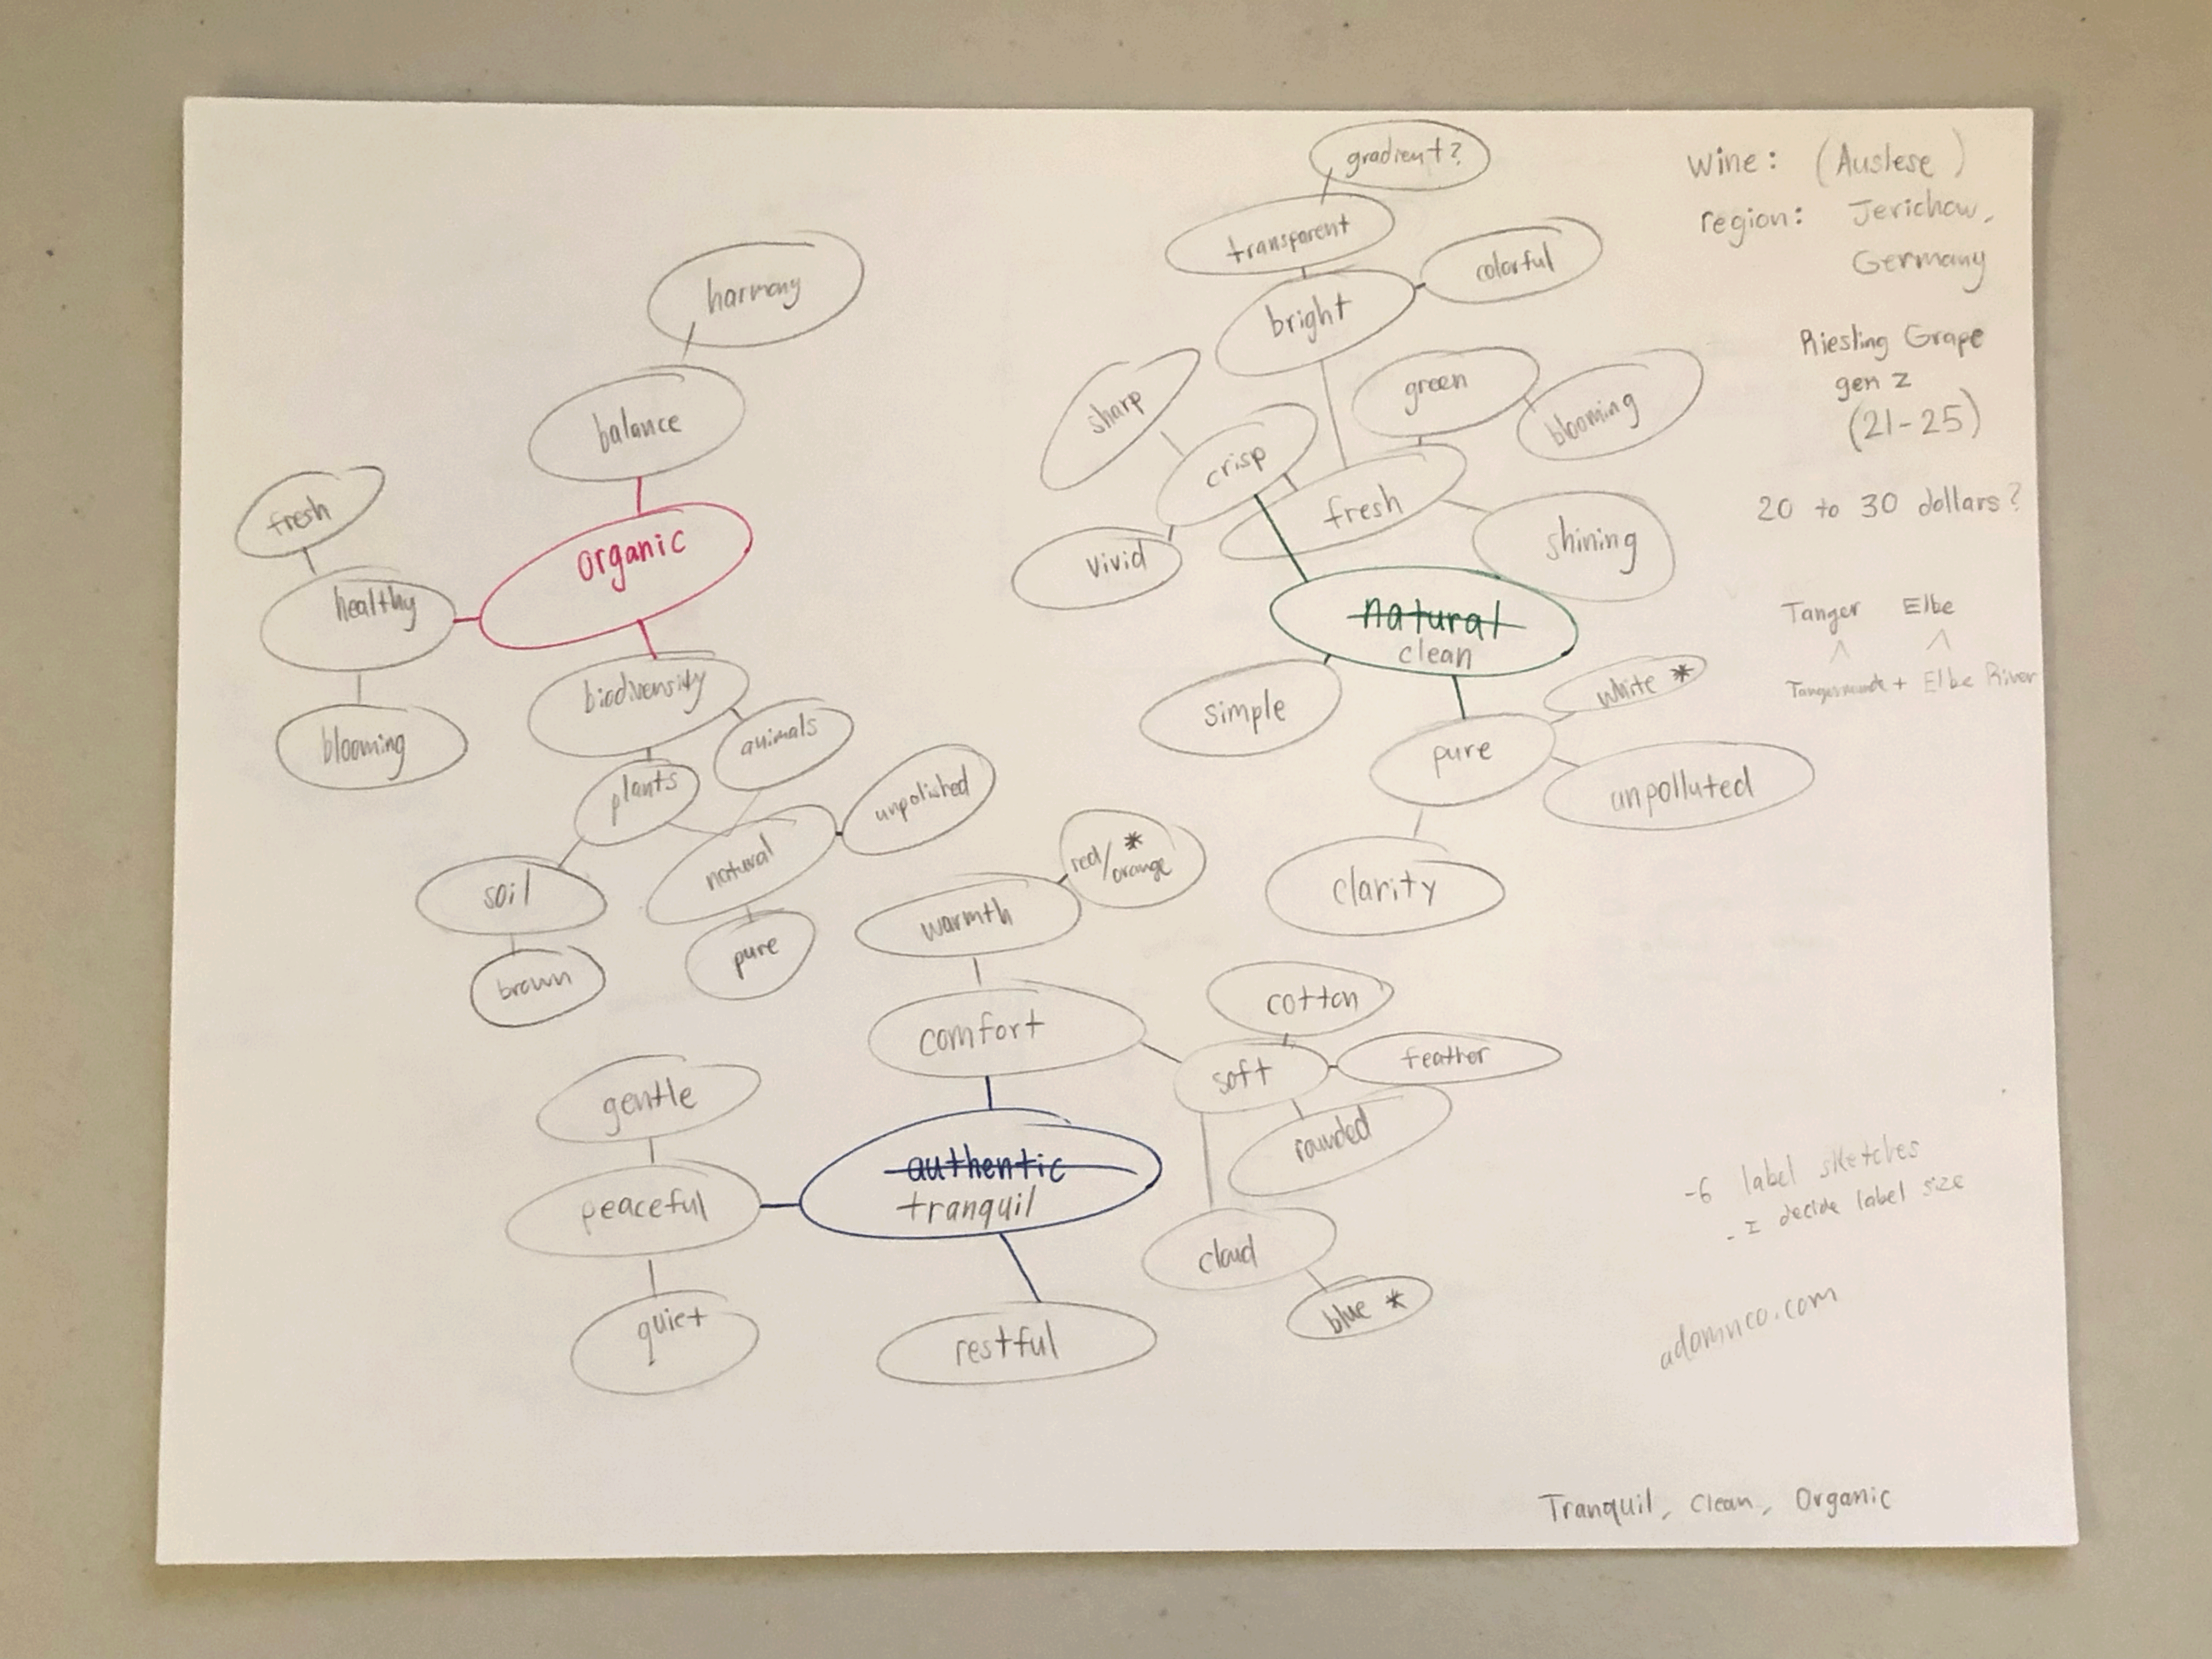 gradient?
transparent
colorful
bright
sharp
crisp
green
blooming
fresh
vivid
shining
natural
clean
simple
white *
pure
unpolluted
clarity
harmony
balance
fresh
organic
healthy
blooming
biodiversity
animals
plants
unpolished
natural
soil
brown
pure
red/ *
orange
warmth
comfort
cotton
soft
feather
rounded
cloud
blue *
gentle
authentic
tranquil
peaceful
quiet
restful
Wine: (Auslese)
region: Jerichow,
Germany
Riesling Grape
gen z
(21-25)
20 to 30 dollars?
Tanger Elbe
+ Elbe River
-6 label sketches
- I decide label size
Tranquil, Clean, Organic